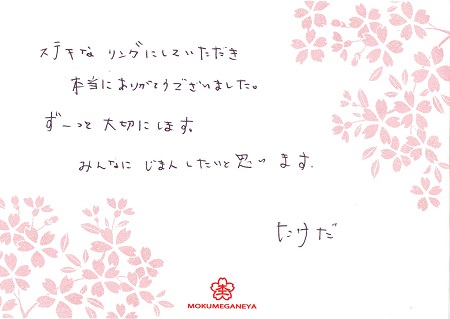 ステキな リングにしていただき
本当にありがとうございました。
ずーっと 大切にします。
みんなに じまんしたいと思います.
たけだ
MOKUMEGANEYA